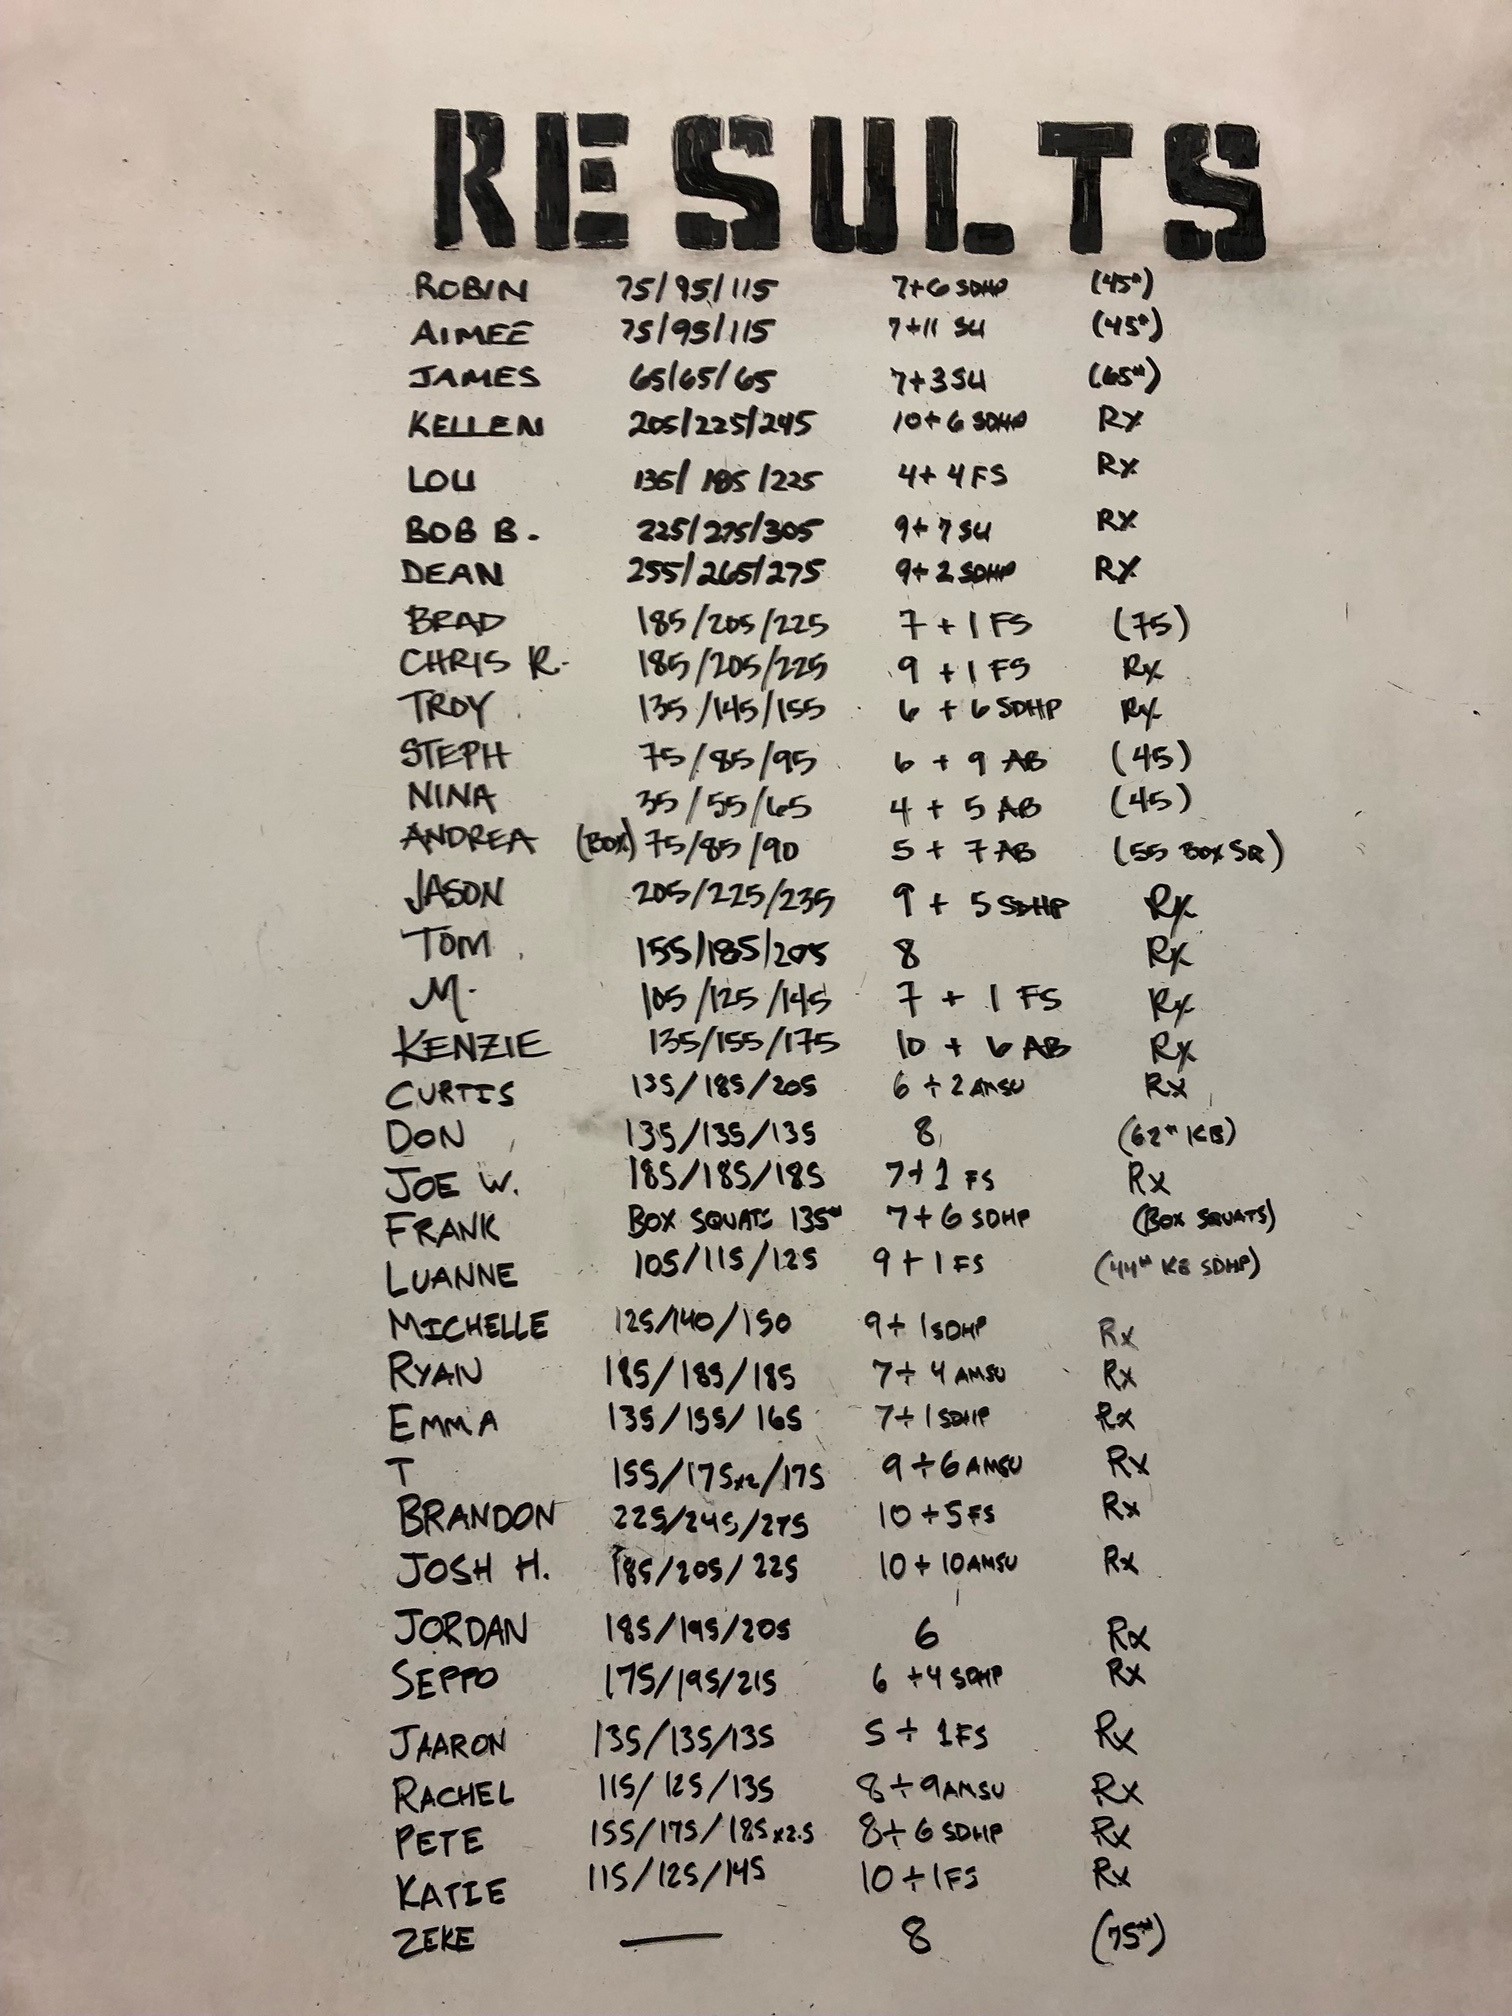 RESULTS
ROBIN 75/95/115 7+6 SDHP (45#)
AIMEE 75/95/115 7+11 SU (45#)
JAMES 65/65/65 7+3 SU (65#)
KELLEN 205/225/245 10+6 SDHP Rx
LOU 135/185/225 4+4 FS Rx
BOB B. 225/275/305 9+7 SU Rx
DEAN 255/265/275 9+2 SDHP RX
BRAD 185/205/225 7+1 FS (75)
CHRIS R. 185/205/225 9+1 FS Rx
TROY 135/145/155 6+6 SDHP Rx
STEPH 75/85/95 6+9 AB (45)
NINA 35/55/65 4+5 AB (45)
ANDREA (BOX) 75/85/90 5+7 AB (55 BOX SQ)
JASON 205/225/235 9+5 SDHP Rx
TOM 155/185/205 8 Rx
M. 105/125/145 7+1 FS Rx
KENZIE 135/155/175 10+6 AB Rx
CURTIS 135/185/205 6+2 AMSU Rx
DON 135/135/135 8 (62# KB)
JOE W. 185/185/185 7+1 FS Rx
FRANK BOX SQUATS 135# 7+6 SDHP (BOX SQUATS)
LUANNE 105/115/125 9+1 FS (44# KB SDHP)
MICHELLE 125/140/150 9+1 SDHP Rx
RYAN 185/185/185 7+4 AMSU Rx
EMMA 135/155/165 7+1 SDHP Rx
T 155/175x2/175 9+6 AMSU Rx
BRANDON 225/245/275 10+5 FS Rx
JOSH H. 185/205/225 10+10 AMSU Rx
JORDAN 185/195/205 6 Rx
SEPPO 175/195/215 6+4 SDHP Rx
JAARON 135/135/135 5+1 FS Rx
RACHEL 115/125/135 8+9 AMSU Rx
PETE 155/175/185x2.5 8+6 SDHP Rx
KATIE 115/125/145 10+1 FS Rx
ZEKE — 8 (75#)